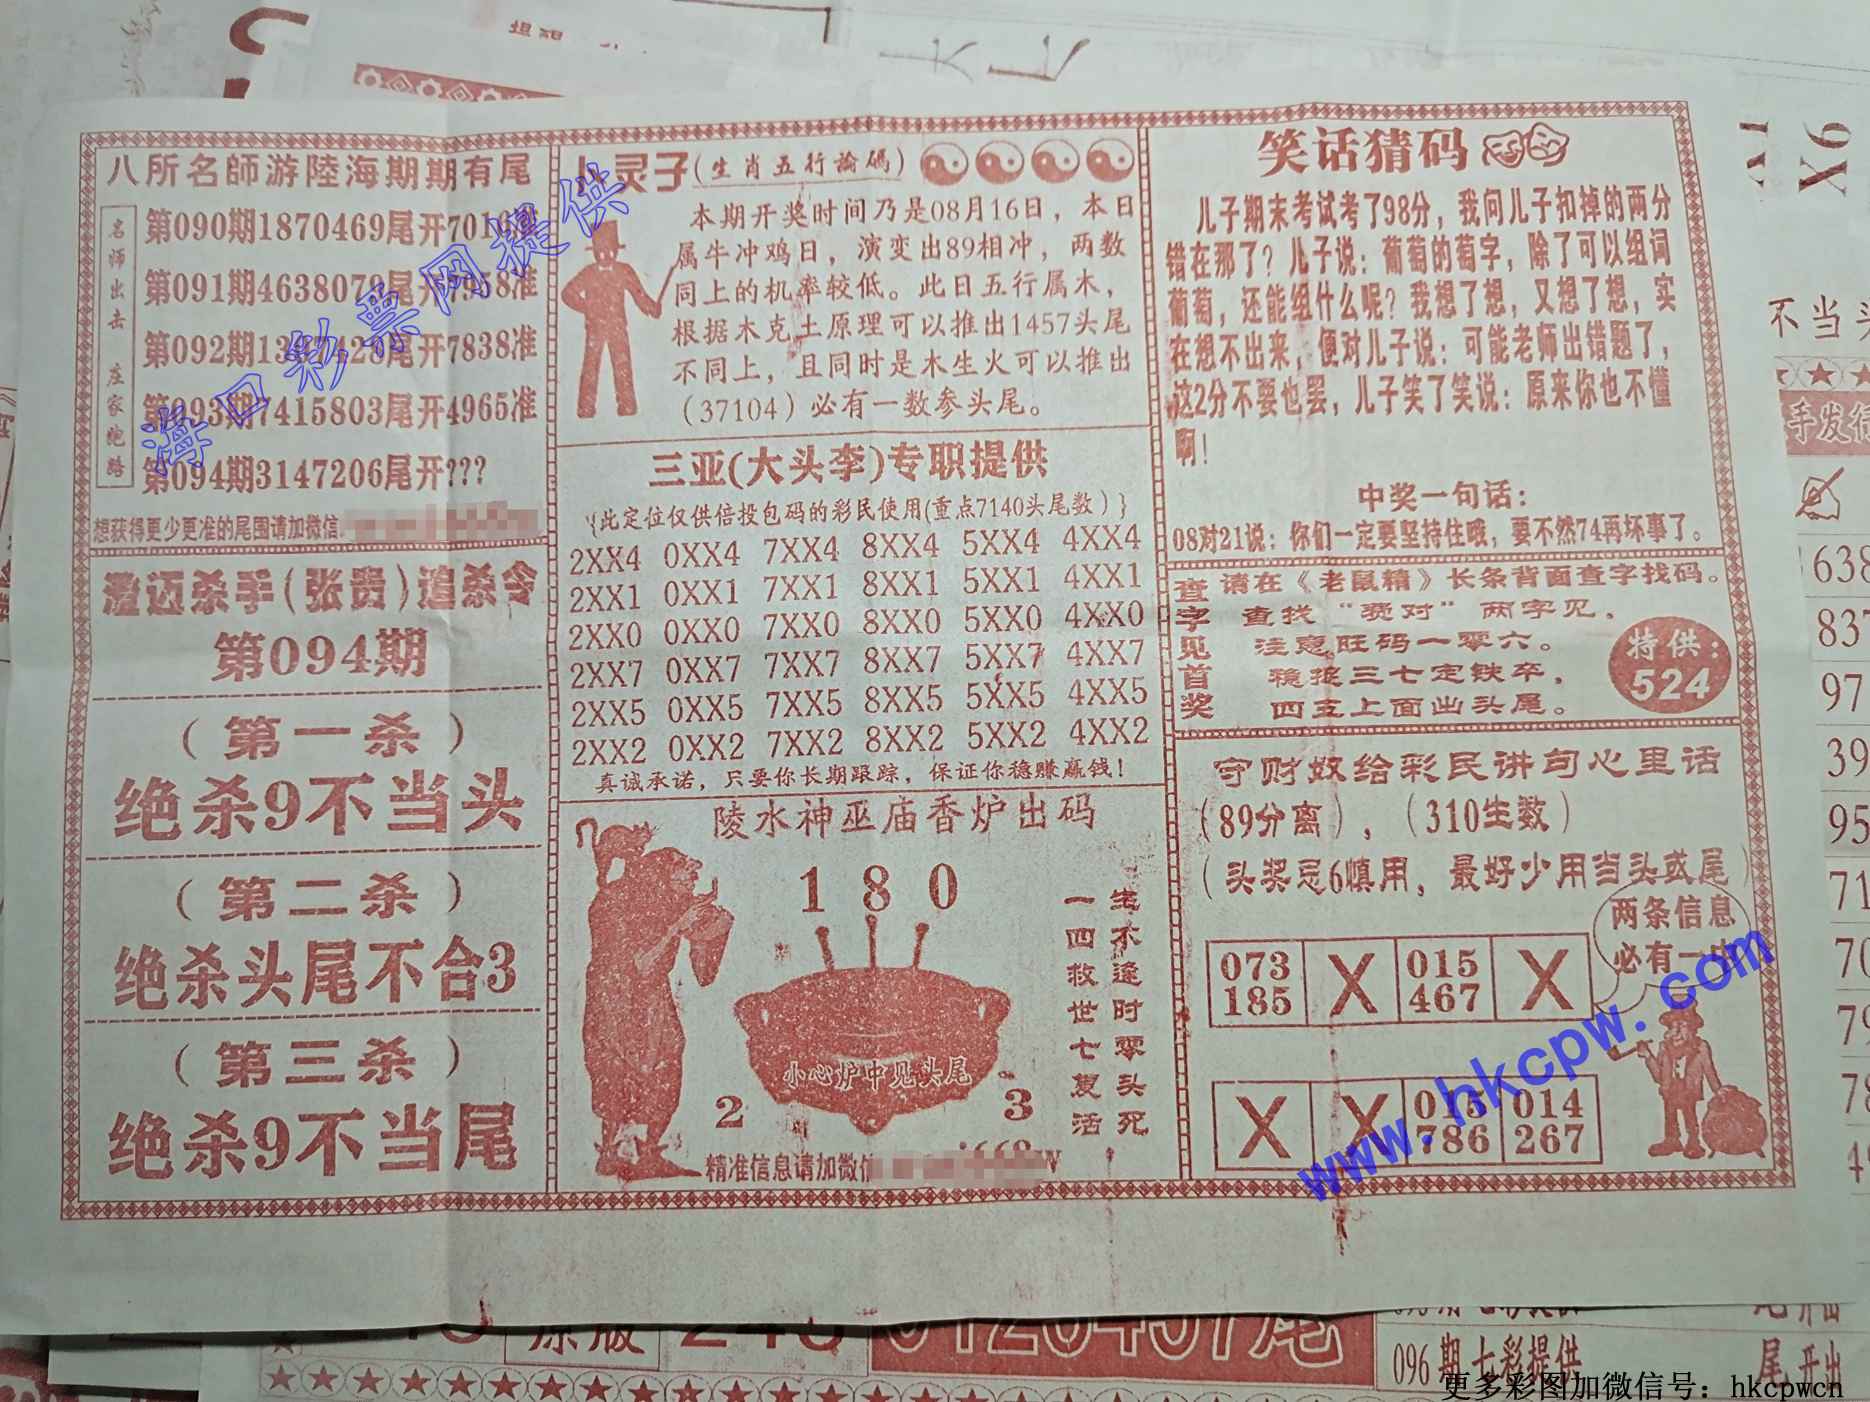 八所名師游陸海期期有尾
名师出击 庄家绝路
第090期1870469尾开7016准
第091期4638079尾开7958准
尾开7838准
第093期7415803尾开4965准
第094期3147206尾开???
想获得更少更准的尾围请加微信
澄迈杀手(张贵)追杀令
第094期
(第一杀)
绝杀9不当头
(第二杀)
绝杀头尾不合3
(第三杀)
绝杀9不当尾
灵子(生肖五行論碼)
本期开奖时间乃是08月16日，本日
属牛冲鸡日，演变出89相冲，两数
同上的机率较低。此日五行属木，
根据木克土原理可以推出1457头尾
不同上，且同时是木生火可以推出
(37104)必有一数参头尾。
三亚(大头李)专职提供
{此定位仅供倍投包码的彩民使用(重点7140头尾数)}
2XX4 0XX4 7XX4 8XX4 5XX4 4XX4
2XX1 0XX1 7XX1 8XX1 5XX1 4XX1
2XX0 0XX0 7XX0 8XX0 5XX0 4XX0
2XX7 0XX7 7XX7 8XX7 5XX7 4XX7
2XX5 0XX5 7XX5 8XX5 5XX5 4XX5
2XX2 0XX2 7XX2 8XX2 5XX2 4XX2
真诚承诺，只要你长期跟踪，保证你稳赚赢钱！
陵水神巫庙香炉出码
1 8 0
生不逢时零头死
一四救世七复活
小心炉中见头尾
2 3
精准信息请加微信
笑话猜码
儿子期末考试考了98分，我问儿子扣掉的两分
错在那了？儿子说：葡萄的萄字，除了可以组词
葡萄，还能组什么呢？我想了想，又想了想，实
在想不出来，便对儿子说：可能老师出错题了，
这2分不要也罢，儿子笑了笑说：原来你也不懂
啊！
中奖一句话：
08对21说：你们一定要坚持住哦，要不然74再坏事了。
查字见首奖
请在《老鼠精》长条背面查字找码。
查找“赛对”两字见，
注意旺码一零六。
稳捉三七定铁卒，
四五上面出头尾。
特供：
524
守财奴给彩民讲句心里话
(89分离)，(310生数)
(头奖忌6慎用，最好少用当头或尾)
两条信息
必有一出
073 X 015 X
185 467
X X 015 014
786 267
海口彩票网提供
www.hkcpw.com
不当头
手发
638
837
97
39
95
71
70
79
78
原版
0126457尾
096期七彩提供 尾开出
更多彩图加微信号：hkcpwcn